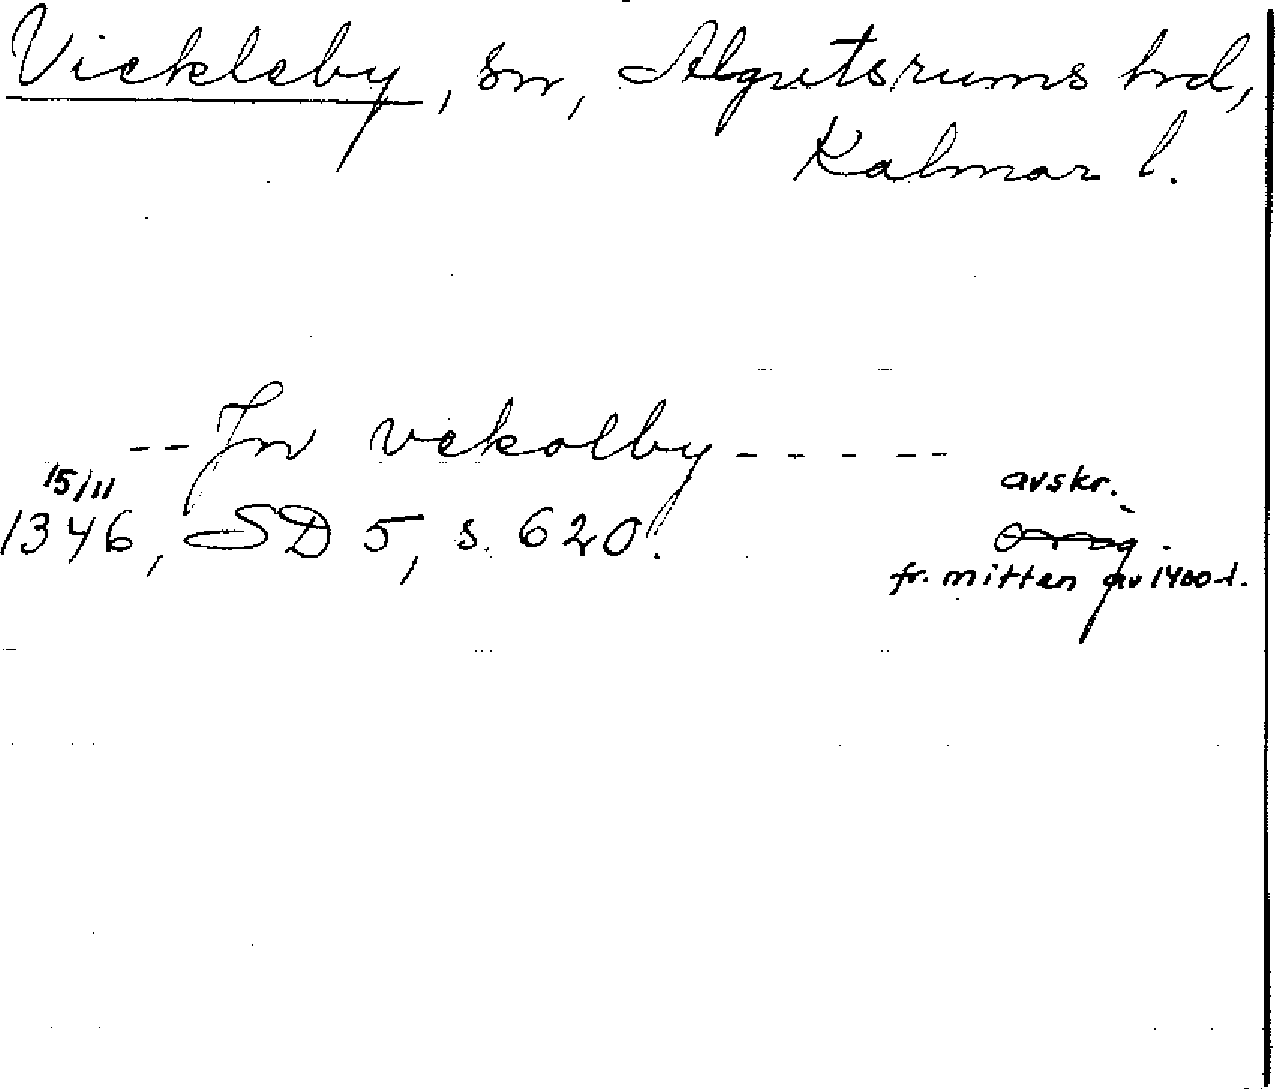 Vickleby, sn, Algutsrums hd,
Kalmar l.
-- Jn vekolby - - - - -
15/11 avskr.
1346, SD 5, s. 620. orig.
fr. mitten av 1400-t.